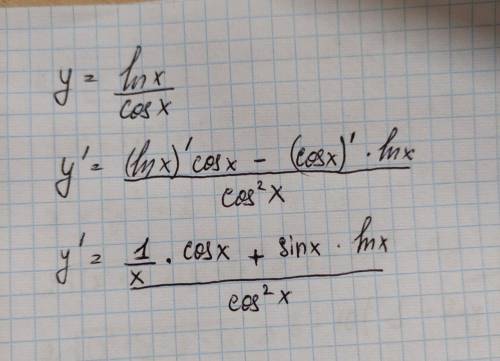 y = lnx / cosx
y' = (lnx)' cosx - (cosx)' · lnx / cos²x
y' = 1/x · cosx + sinx · lnx / cos²x